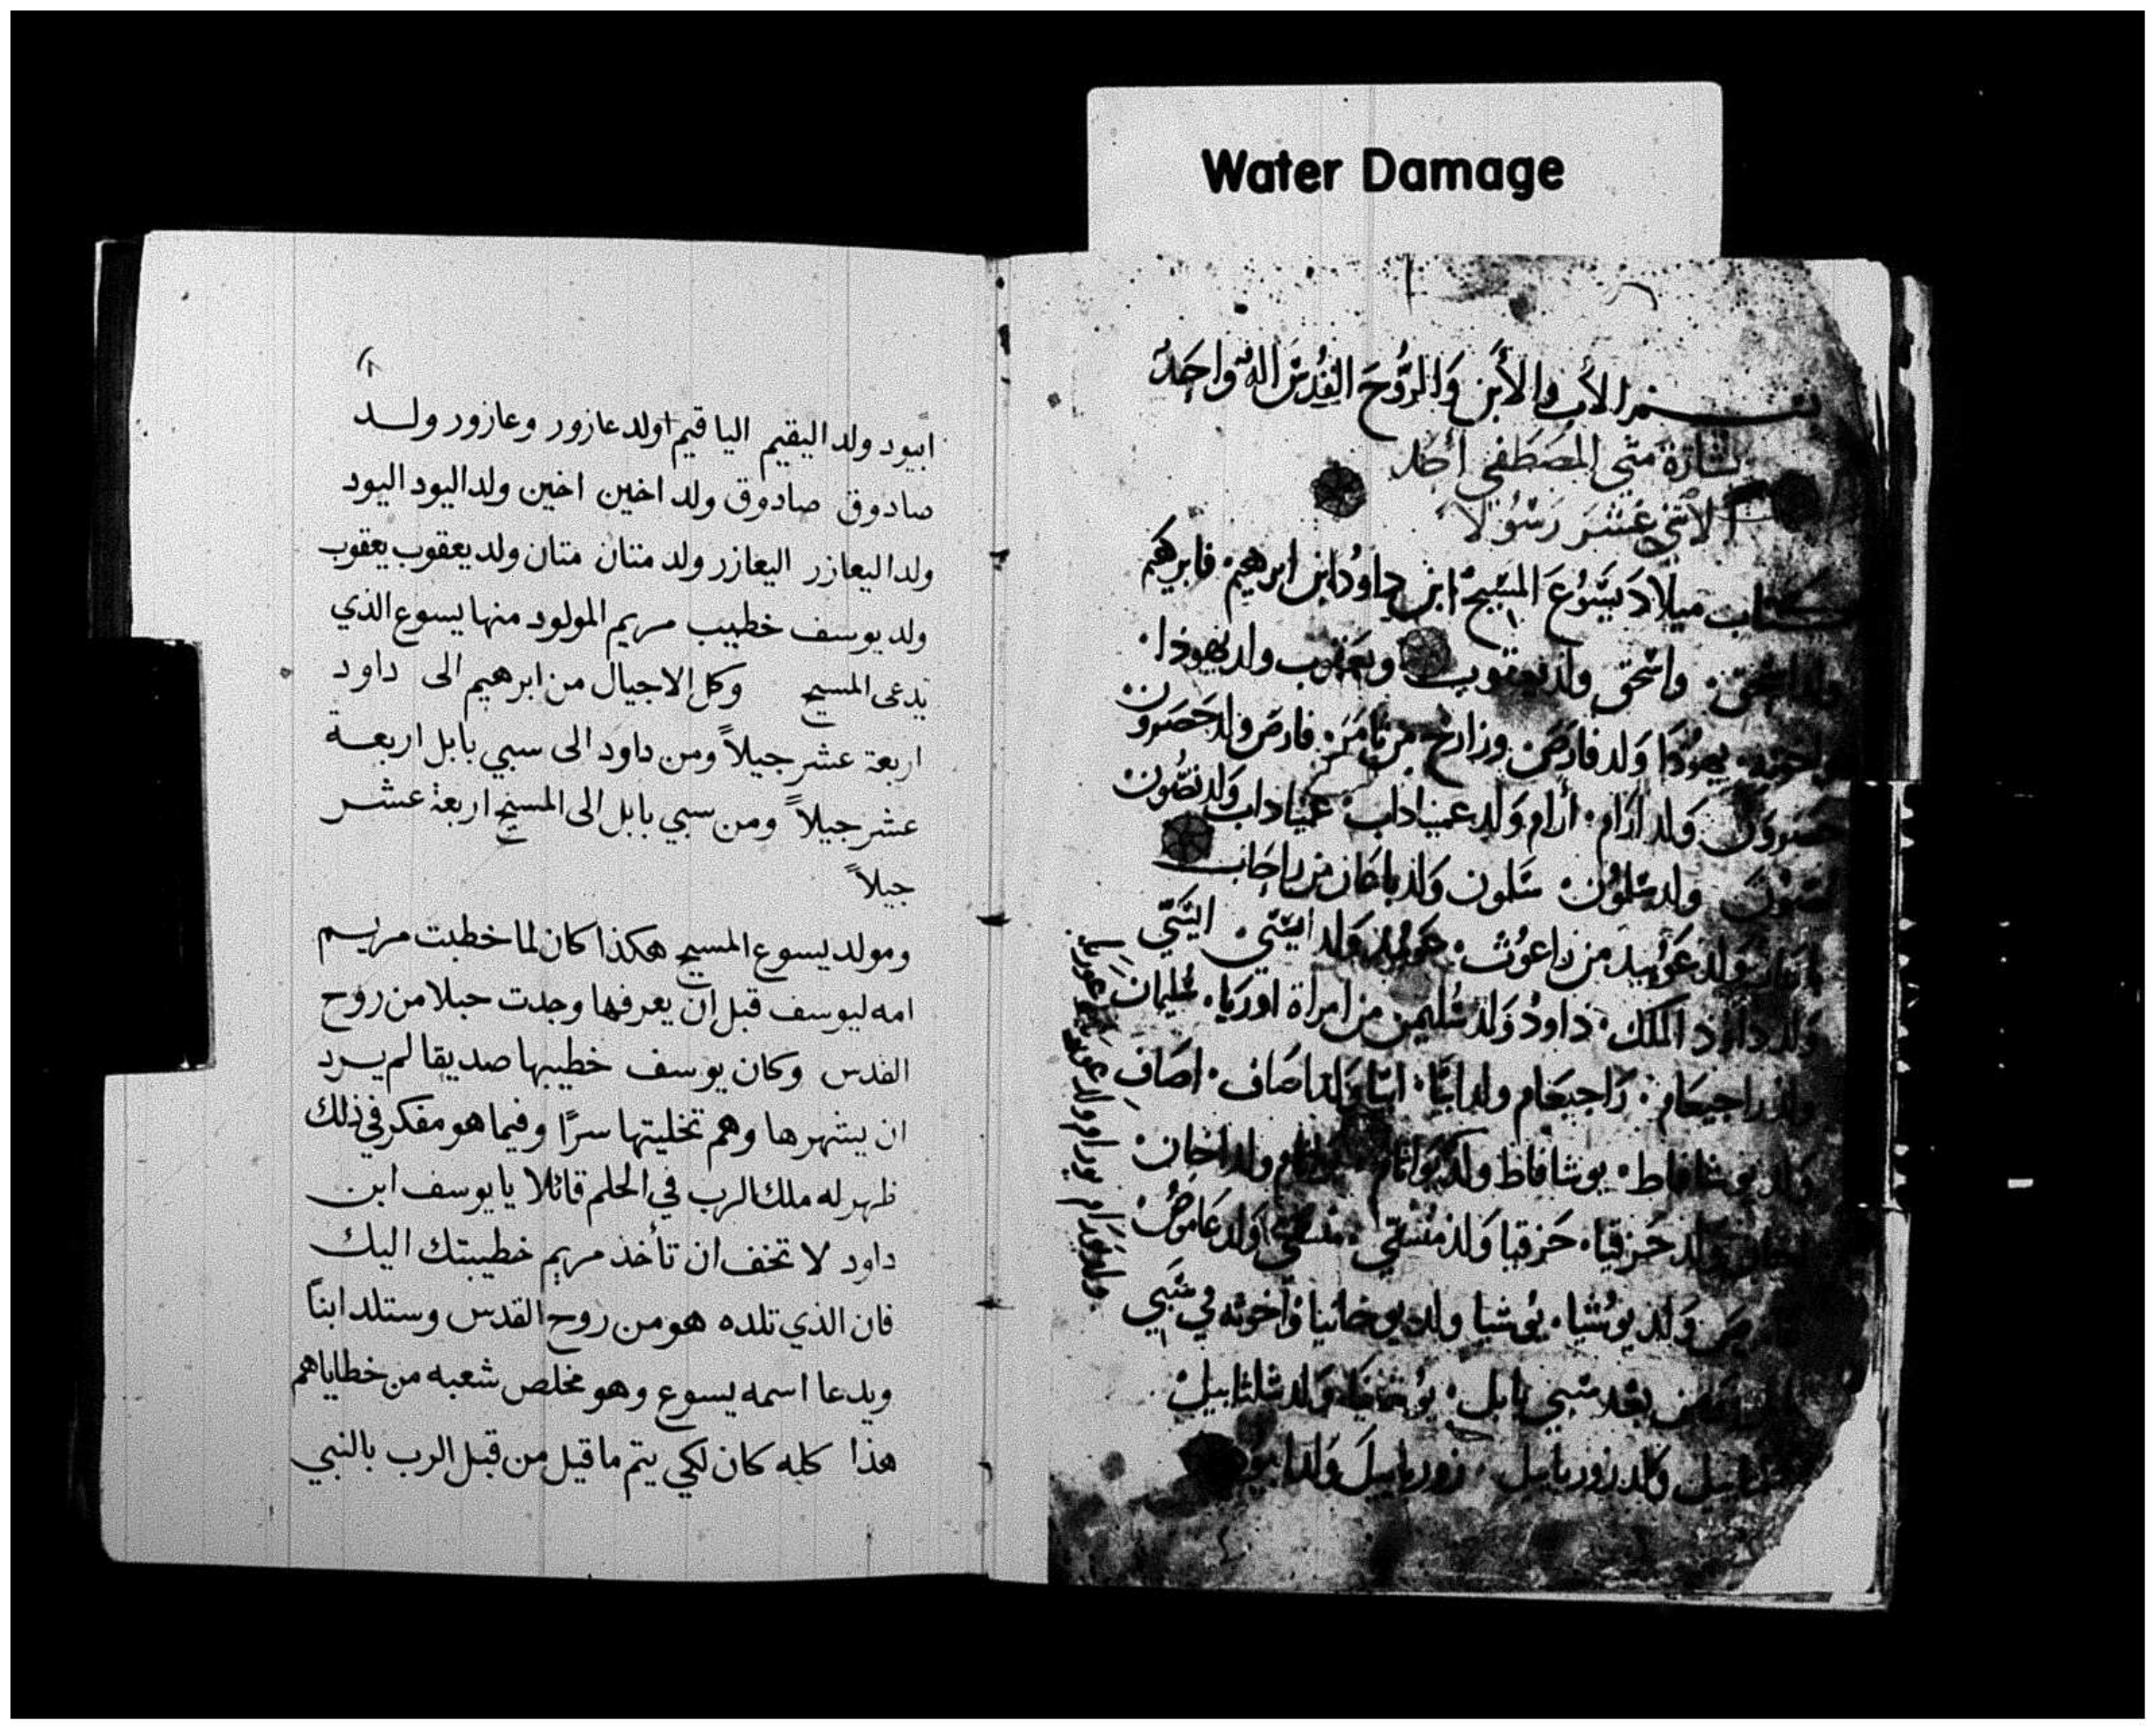 Water Damage
بسم الأب والأبن والروح القدس اله واحد
بشارة متى المصطفى أحد
الاثني عشر رسولا
كتاب ميلاد يسوع المسيح ابن داود ابن ابرهيم فابرهيم
ولد اسحق واسحق ولد يعقوب ويعقوب ولد يهوذا
واخوته يهوذا ولد فارص وزارح من تامر فارص ولد حصرون
حصرون ولد ارام أرام ولد عميناداب عميناداب ولد نصون
نصون ولد سلمون سلمون ولد باعاز من راحاب
ولد عوبيد من راعوث عوبيد ولد ايسي ايسي
ولد داود الملك داود ولد سليمن من امراة اوريا سليمان
ولد راجيعام راجيعام ولد ابيا ابيا ولد اصاف اصاف
ولد يوشافاط يوشافاط ولد يورام ولد احان
ولد حزقيا حزقيا ولد منسي منسي ولد عاموص
ولد يوشيا يوشيا ولد يوخانيا واخوته في سبي
من بعد سبي بابل ولد شلتاييل
ولد زوربابيل زوربابيل ولد
ابيود ولد اليقيم الياقيم اولد عازور وعازور ولد
صادوق صادوق ولد اخين اخين ولد اليود اليود
ولد اليعازر اليعازر ولد متان متان ولد يعقوب يعقوب
ولد يوسف خطيب مريم المولود منها يسوع الذي
يدعى المسيح وكل الاجيال من ابرهيم الى داود
اربعة عشر جيلاً ومن داود الى سبي بابل اربعة
عشر جيلاً ومن سبي بابل الى المسيح اربعة عشر
جيلاً
ومولد يسوع المسيح هكذا كان لما خطبت مريم
امه ليوسف قبل ان يعرفها وجدت حبلا من روح
القدس وكان يوسف خطيبها صديقا لم يرد
ان يشهرها وهم تخليتها سرًا وفيما هو مفكر في ذلك
ظهر له ملك الرب في الحلم قائلا يا يوسف ابن
داود لا تخف ان تأخذ مريم خطيبتك اليك
فان الذي تلده هو من روح القدس وستلد ابناً
ويدعا اسمه يسوع وهو مخلص شعبه من خطاياهم
هذا كله كان لكي يتم ما قيل من قبل الرب بالنبي